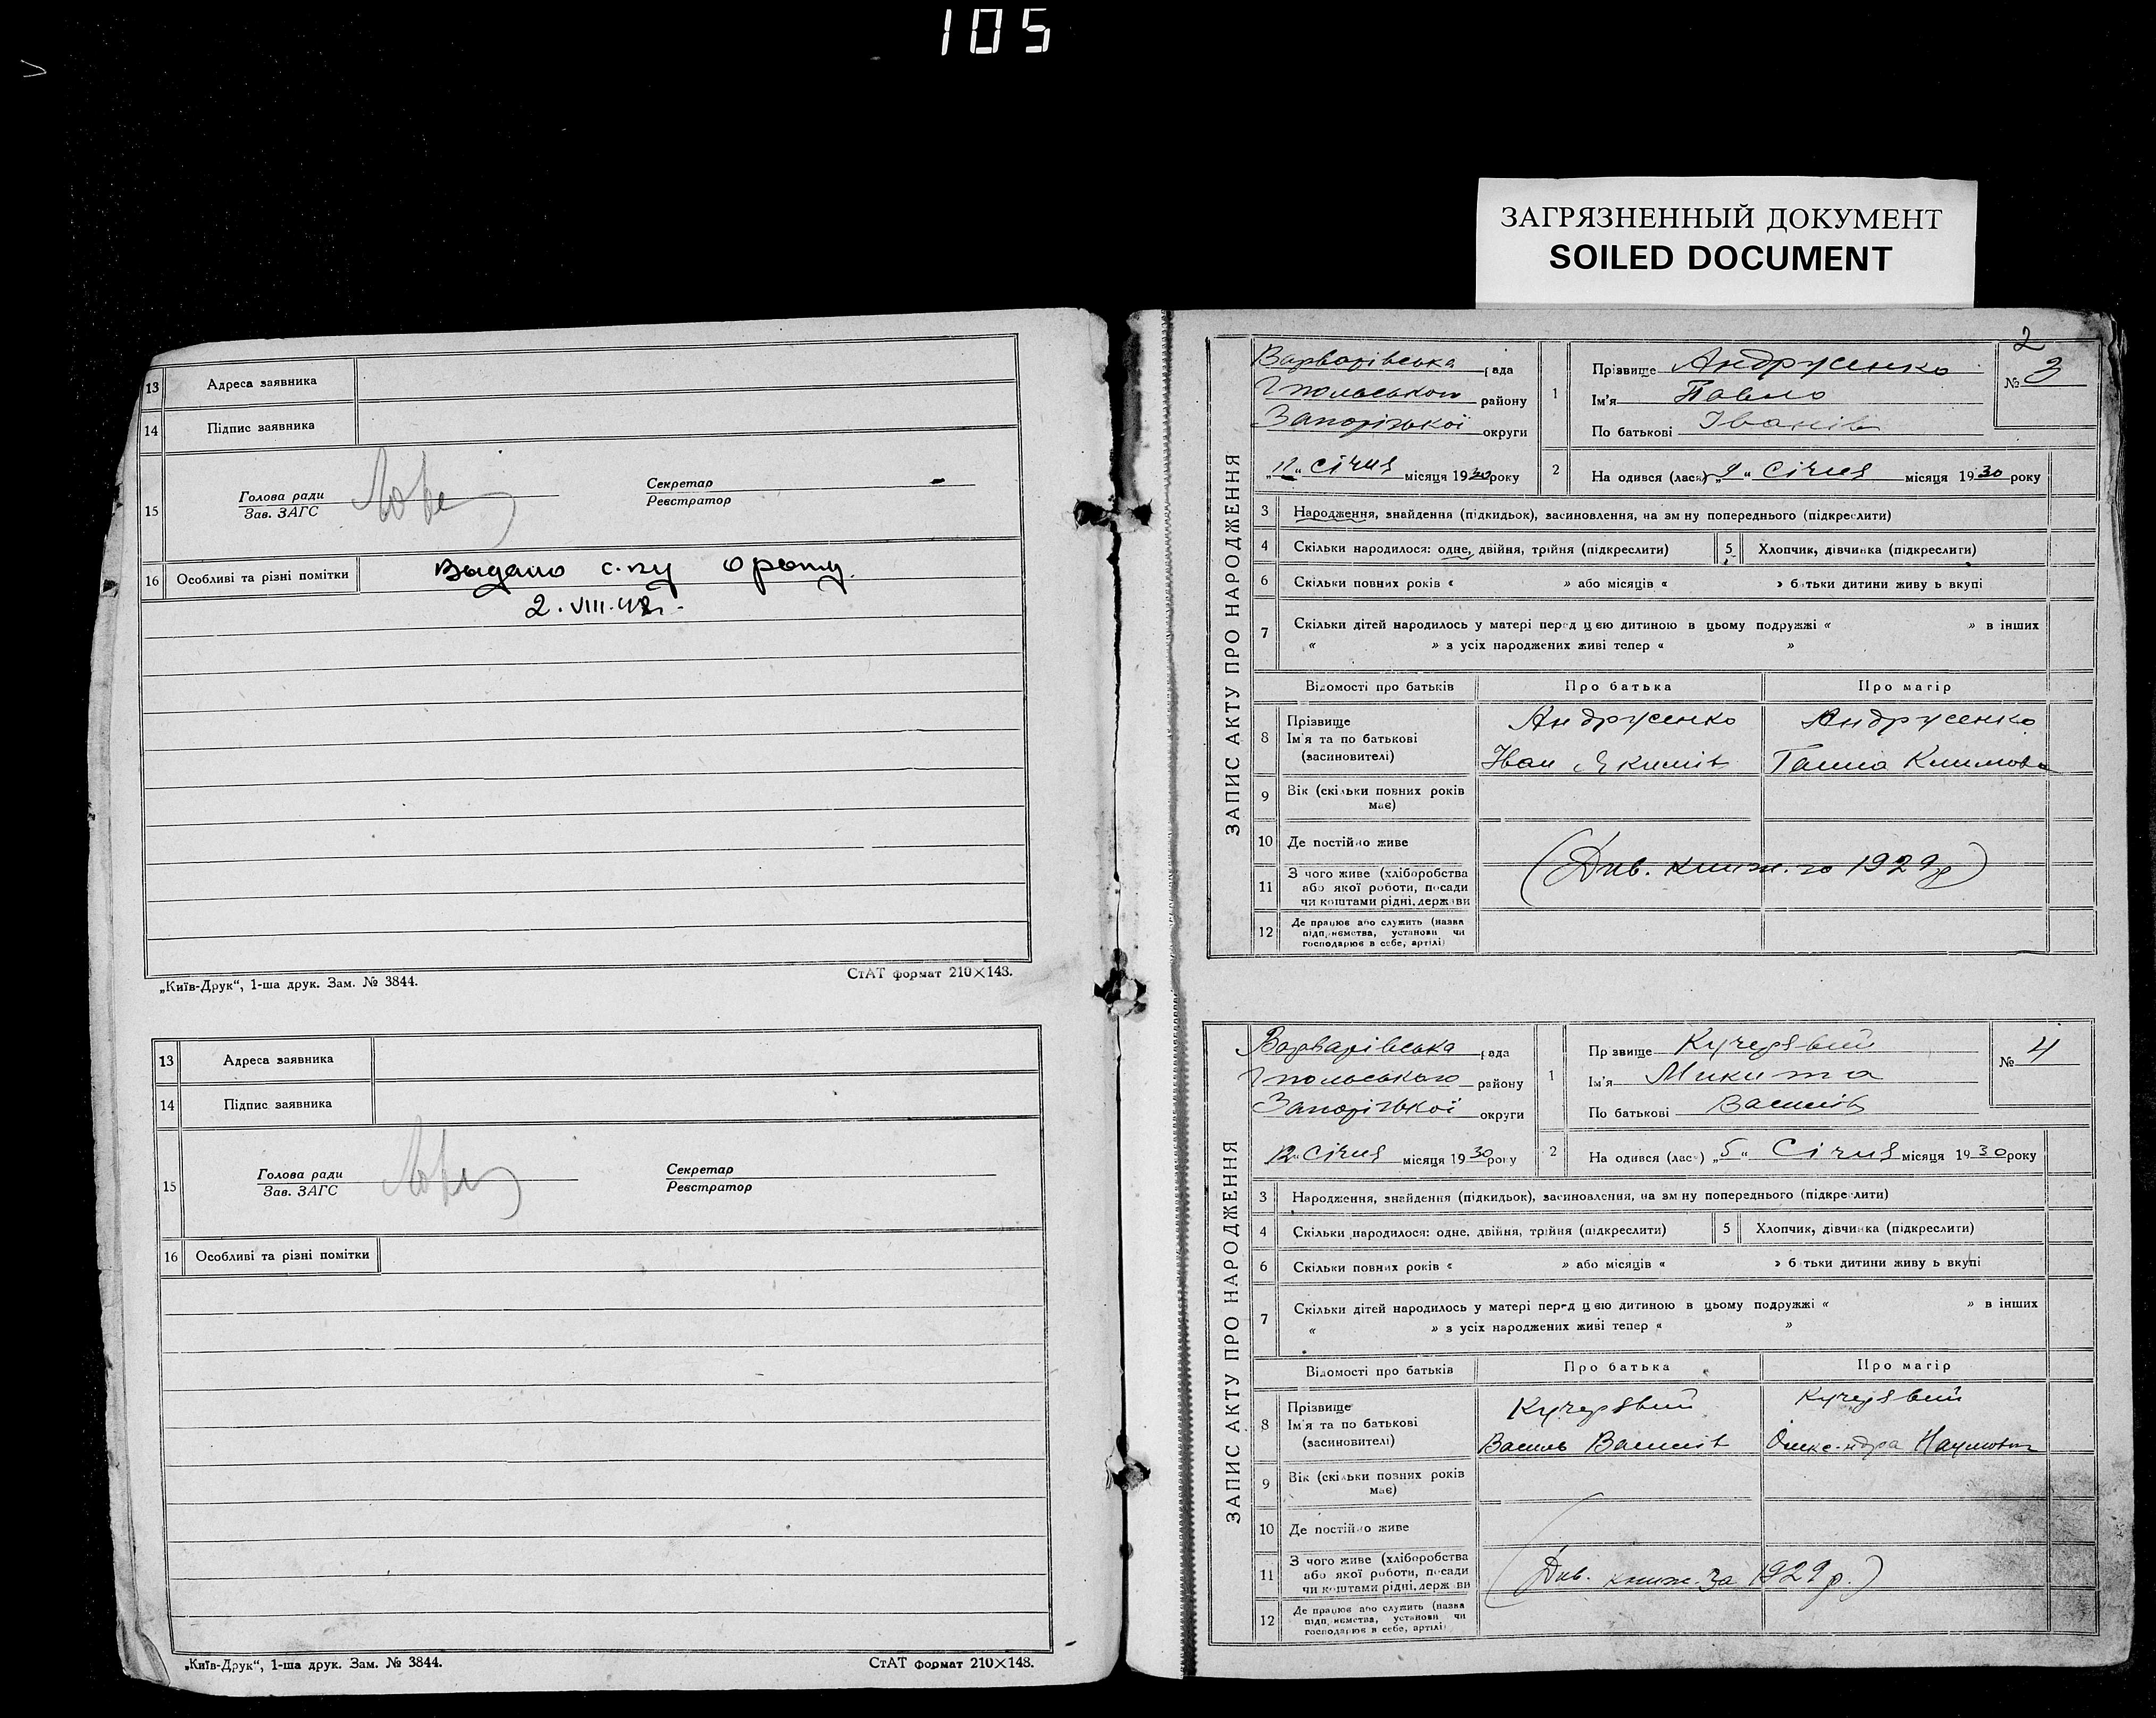 105
ЗАГРЯЗНЕННЫЙ ДОКУМЕНТ
SOILED DOCUMENT
13 Адреса заявника
14 Підпис заявника
15 Голова ради Секретар
Зав. ЗАГС Реєстратор
16 Особливі та різні помітки
2.VIII.48г.
„Київ-Друк“, 1-ша друк. Зам. № 3844. СтАТ формат 210×148.
13 Адреса заявника
14 Підпис заявника
15 Голова ради Секретар
Зав. ЗАГС Реєстратор
16 Особливі та різні помітки
„Київ-Друк“, 1-ша друк. Зам. № 3844. СтАТ формат 210×148.
2
ЗАПИС АКТУ ПРО НАРОДЖЕННЯ
Варварівська рада
району
Запорізької округи
„11“ Січня місяця 1930 року
1 Прізвище Андрусенко № 3
Ім'я Павло
По батькові Іванів
2 На одився (лася) „9“ Січня місяця 1930 року
3 Народження, знайдення (підкидьок), засиновлення, на зм ну попереднього (підкреслити)
4 Скільки народилося: одне, двійня, трійня (підкреслити) 5 Хлопчик, дівчинка (підкреслити)
6 Скільки повних років « » або місяців « » б тьки дитини живу ь вкупі
7 Скільки дітей народилось у матері перед цією дитиною в цьому подружжі « » в інших
« » з усіх народжених живі тепер « »
Відомості про батьків Про батька Про матір
8 Прізвище Андрусенко Андрусенко
Ім'я та по батькові
(засиновителі) Іван Якимів Ганна Климова
9 Вік (скільки повних років
має)
10 Де постійно живе
(Див. книж. за 1929р)
11 З чого живе (хліборобства
або якої роботи, посади
чи коштами рідні, держ ви
12 Де працює або служить (назва
підприємства, установи чи
господарює в себе, артілі)
ЗАПИС АКТУ ПРО НАРОДЖЕННЯ
Варварівська рада
району
Запорізької округи
„12“ Січня місяця 1930 року
1 Пр звище Кучерявий № 4
Ім'я Микита
По батькові Василів
2 На одився (лась) „5“ Січня місяця 1930 року
3 Народження, знайдення (підкидьок), засиновлення, на зм ну попереднього (підкреслити)
4 Скільки народилося: одне, двійня, трійня (підкреслити) 5 Хлопчик, дівчинка (підкреслити)
6 Скільки повних років « » або місяців « » б тьки дитини живу ь вкупі
7 Скільки дітей народилось у матері перед цією дитиною в цьому подружжі « » в інших
« » з усіх народжених живі тепер « »
Відомості про батьків Про батька Про матір
8 Прізвище Кучерявий Кучерявий
Ім'я та по батькові
(засиновителі) Василь Василів Наумовна
9 Вік (скільки повних років
має)
10 Де постійно живе
11 З чого живе (хліборобства
або якої роботи, посади
чи коштами рідні, держ ви
(Див. книж. за 1929р.)
12 Де працює або служить (назва
підп иємства, установи чи
господарює в себе, артілі)